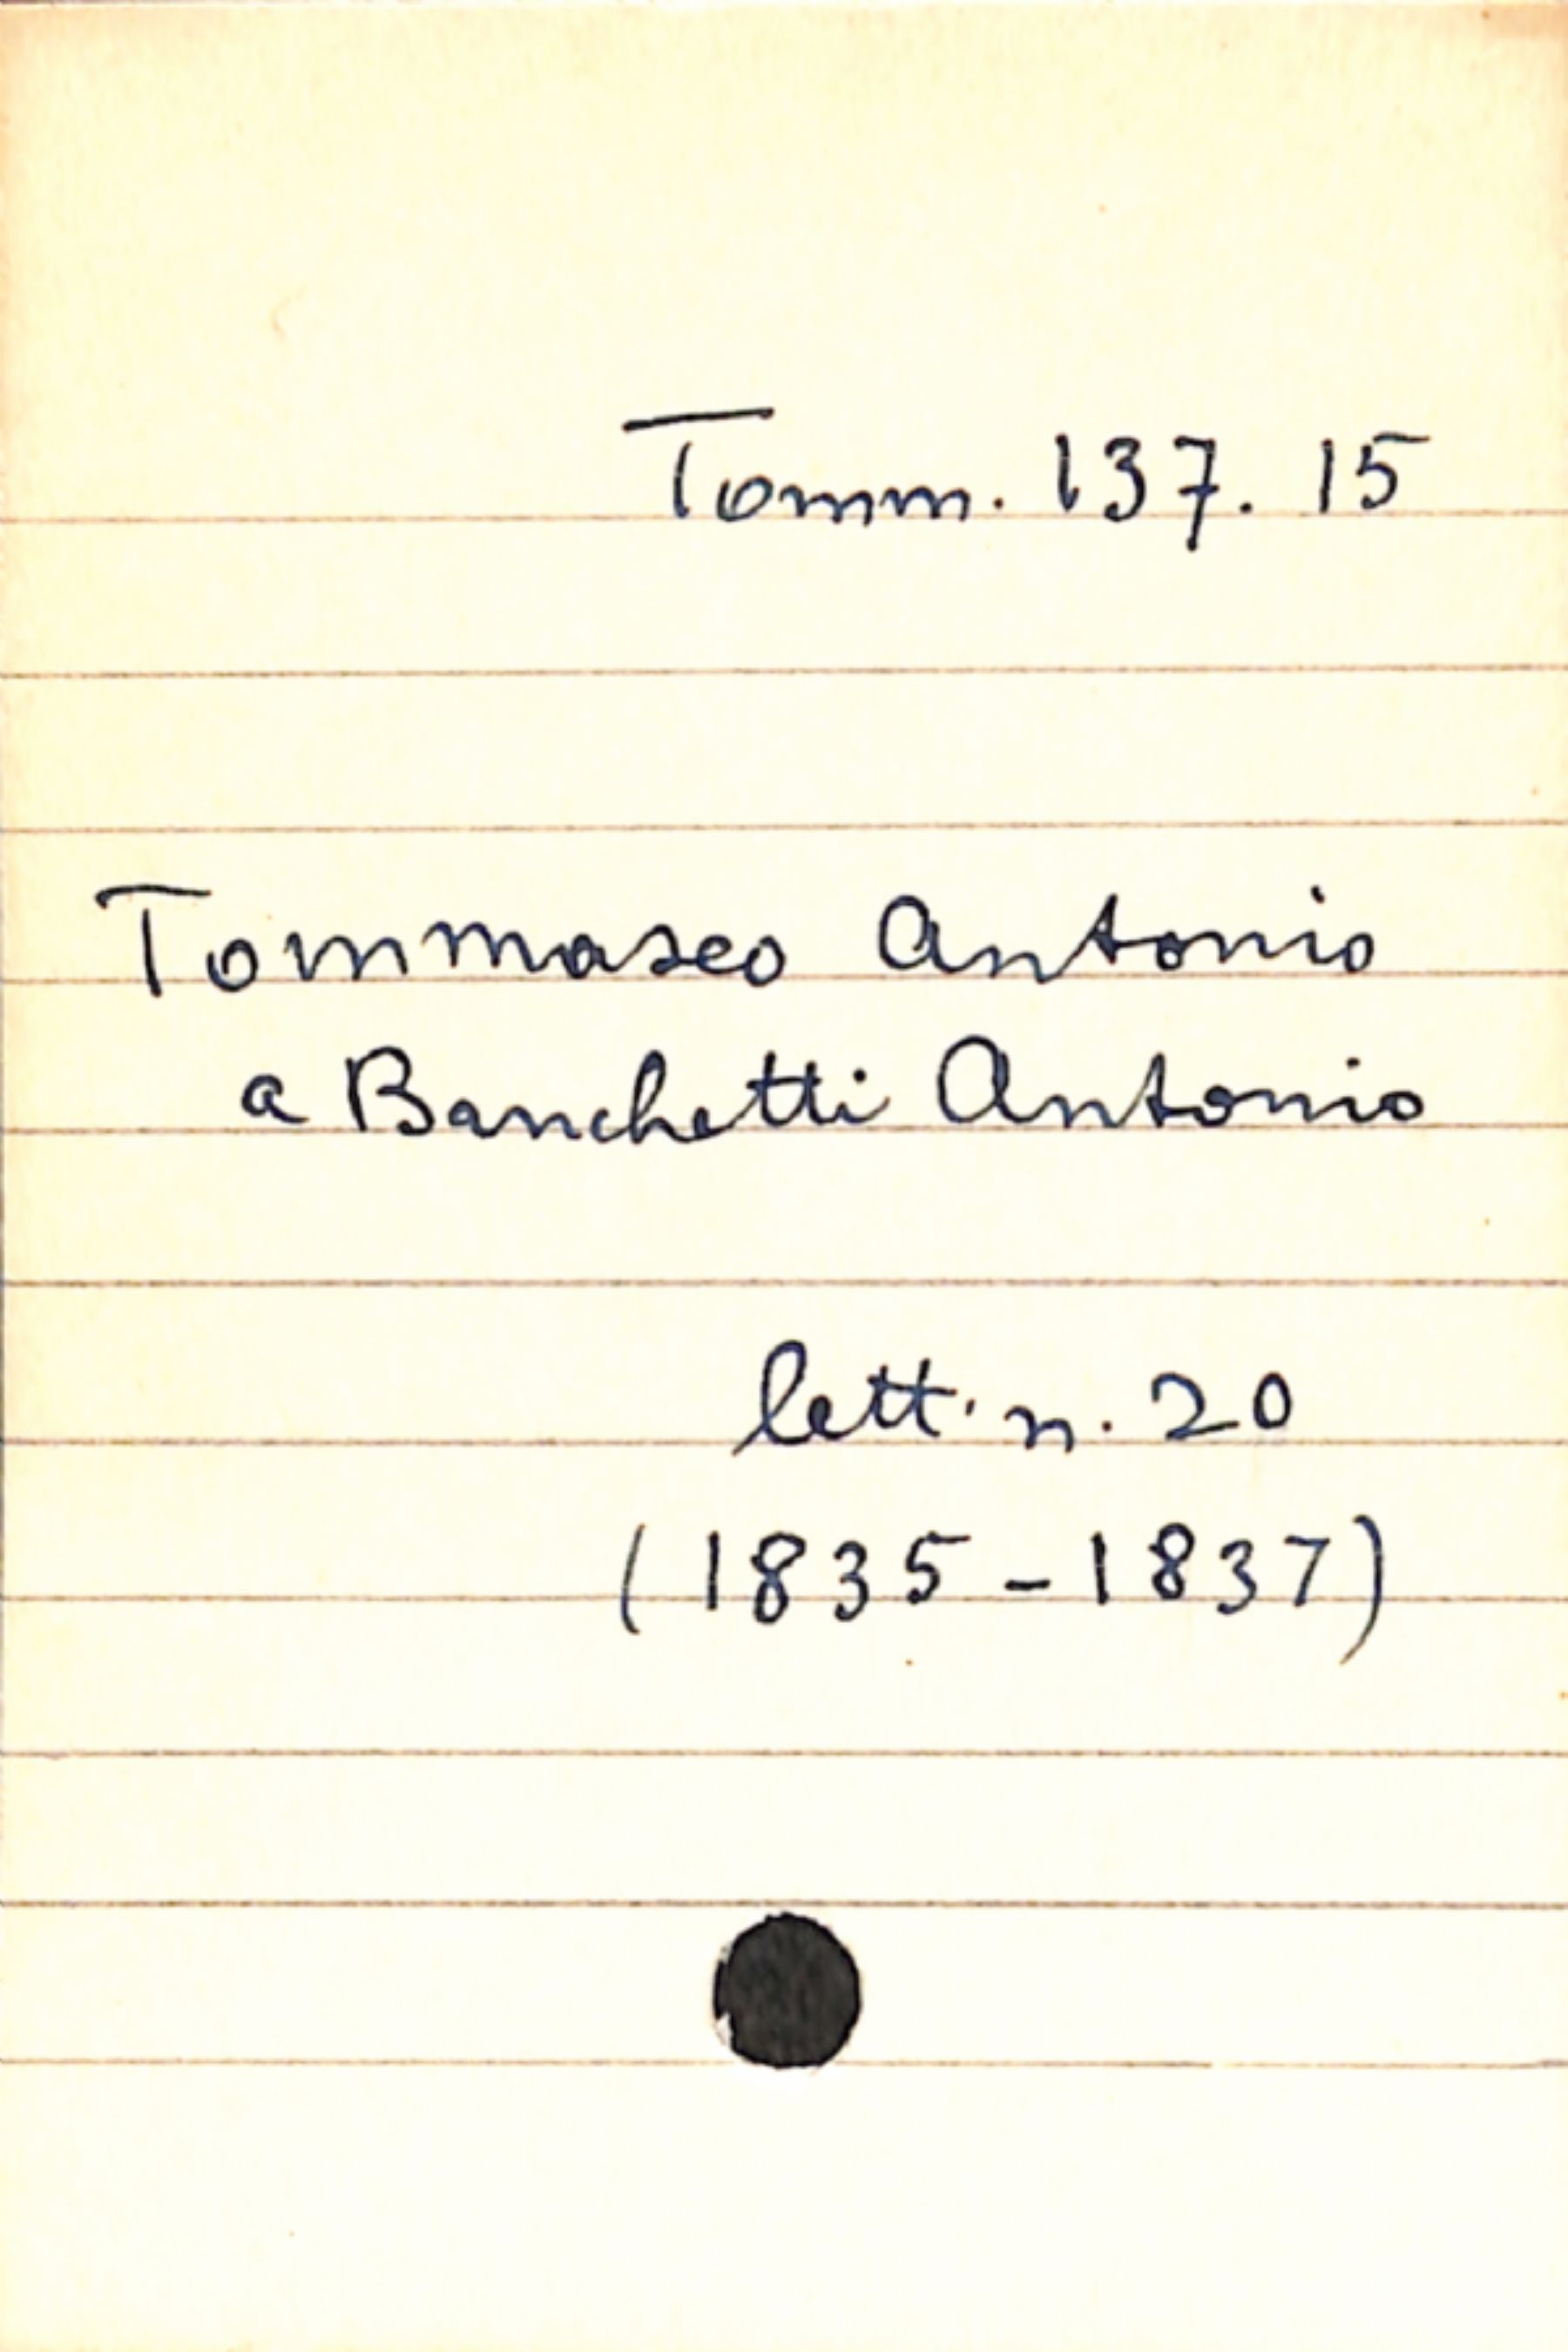 Tomm. 137. 15
Tommaseo Antonio
a Banchetti Antonio
lett. n. 20
(1835-1837)